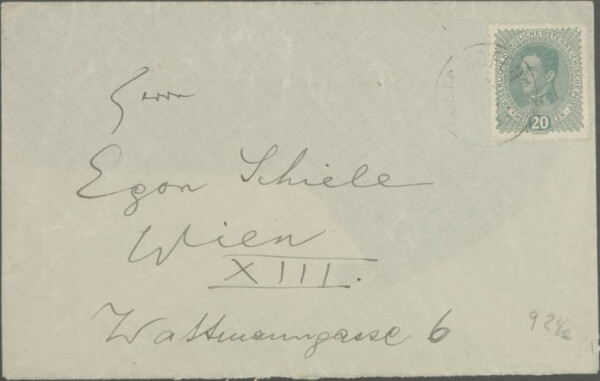 Herrn
Egon Schiele
Wien
XIII.
Wattmanngasse 6
20